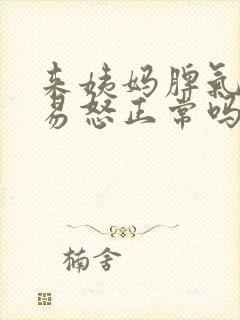 来姨妈脾气
易怒正常吗
楠舍